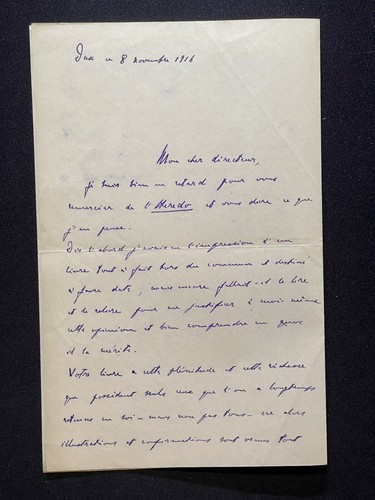 Dax ce 8 novembre 1916
Mon cher directeur,
je suis bien en retard pour vous
remercier de l'Heredo et vous dire ce que
j'en pense.
Dès l'abord j'avais eu l'impression d'un
livre tout à fait hors du commun et destiné
à faire date, mais encore fallait-il le lire
et le relire pour me justifier à moi-même
cette opinion et bien comprendre en quoi
il la mérite.
Votre livre a cette plénitude et cette richesse
que possèdent seuls ceux que l'on a longtemps
retenus en soi - mais non pas tous - car alors
illustrations et confirmations sont venues tout